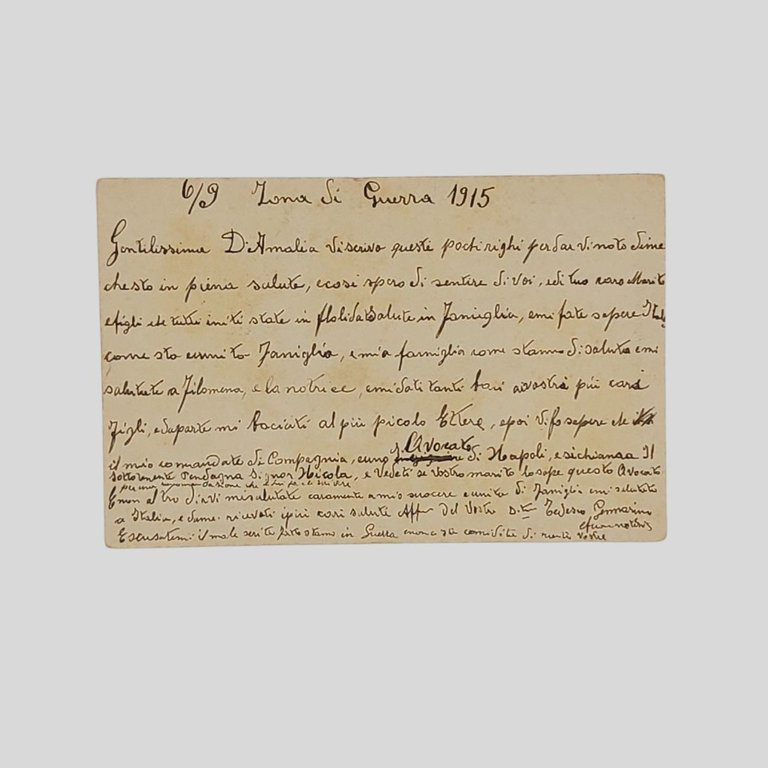 6/9 Zona di Guerra 1915
Gentilissima D. Amalia vi scrivo questi pochi righi per dar vi noto di me
che sto in piena salute, e cosi spero di sentire di voi, e di tuo caro Marito
e figli che tutti uniti state in florida salute in Famiglia, e mi fate sapere
come sta unito Famiglia, e mia famiglia come stanno di salute e mi
salutate a Filomena, e la notrice, e mi dati tanti baci a vostri più cari
Figli, e da parte mi baciati al più piccolo Ettere, e poi vi fo sapere che
il mio comandate di Compagnia, e uno Avocato di Napoli, e si chiama Il
sottotenente Signor Nicola, e Vedeti se vostro marito lo sape questo Avocato
E non altro dirvi mi salutate caramente a mio suocere e unito di Famiglia e mi salutate
a Italia, e da me ricevati i più cari salute Aff del Vostro Tedesco Gennarino
Escusatemi il male scritto sotto stamo in Guerra e non ce sta comodità di niente